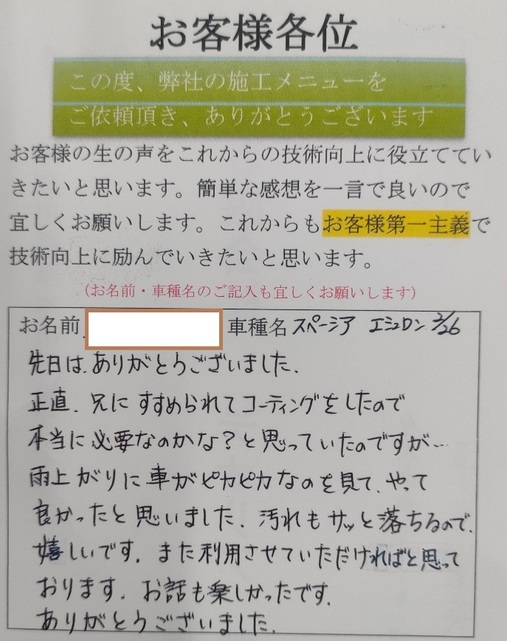 お客様各位
この度、弊社の施工メニューを
ご依頼頂き、ありがとうございます
お客様の生の声をこれからの技術向上に役立ててい
きたいと思います。簡単な感想を一言で良いので
宜しくお願いします。これからもお客様第一主義で
技術向上に励んでいきたいと思います。
(お名前・車種名のご記入も宜しくお願いします)
お名前 車種名 スペーシア エシュロン 2/26
先日は、ありがとうございました。
正直、兄にすすめられてコーティングをしたので
本当に必要なのかな?と思っていたのですが…
雨上がりに車がピカピカなのを見て、やって
良かったと思いました。汚れもサッと落ちるので、
嬉しいです。また利用させていただければと思って
おります。お話も楽しかったです。
ありがとうございました。